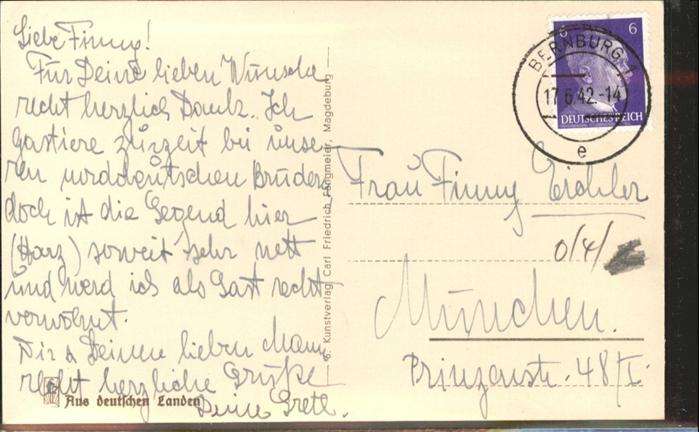 Liebe Finny!
Für Deine lieben Wünsche
recht herzlich Dank. Ich
gastiere zurzeit bei unse-
ren norddeutschen Brüdern
doch ist die Gegend hier
(Harz) soweit sehr nett
und werd ich als Gast recht
verwöhnt.
Dir & Deinem lieben Mann
recht herzliche Grüße
Deine Gretl.
Aus deutschen Landen
Kunstverlag Carl Friedrich Fangmeier, Magdeburg
6 6
BERNBURG 1
17.6.42.-14
DEUTSCHES REICH
e
Frau Finny Eichler
München.
Prinzenstr. 48/I.